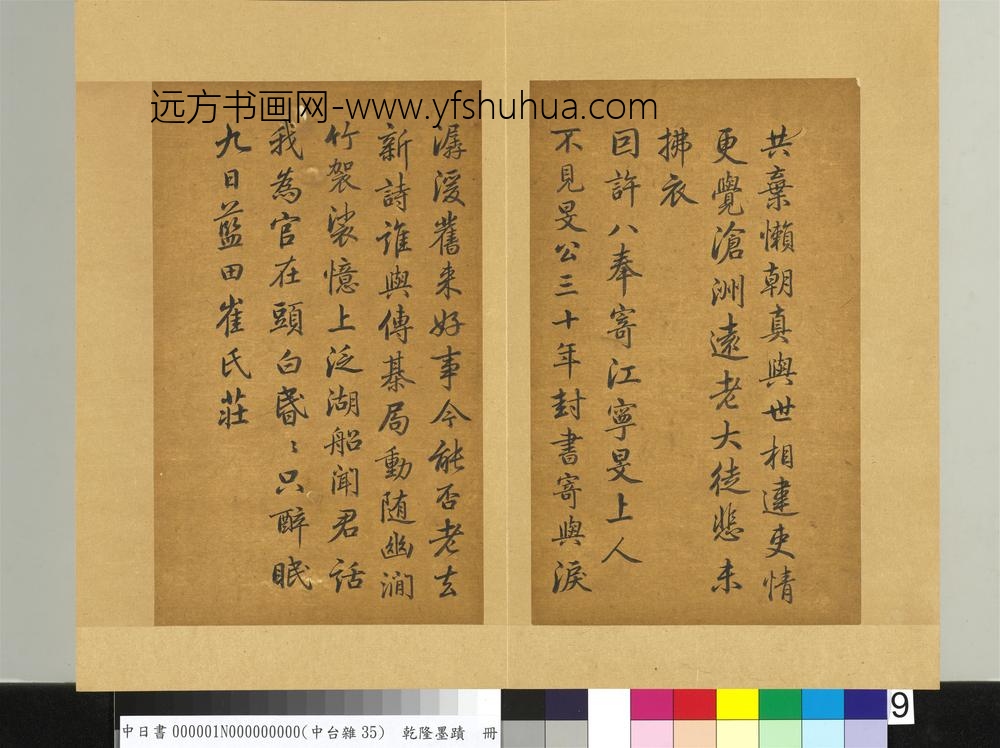 远方书画网-www.yfshuhua.com
共棄懶朝真與世相違吏情
更覺滄洲遠老大徒悲未
拂衣
囙許八奉寄江寧旻上人
不見旻公三十年封書寄與淚
潺湲舊来好事今能否老去
新詩誰與傳碁局動随幽澗
竹袈裟憶上泛湖船聞君話
我為官在頭白昏〻只醉眠
九日藍田崔氏莊
中日書 000001N000000000(中台雜 35) 乾隆墨蹟 冊
9